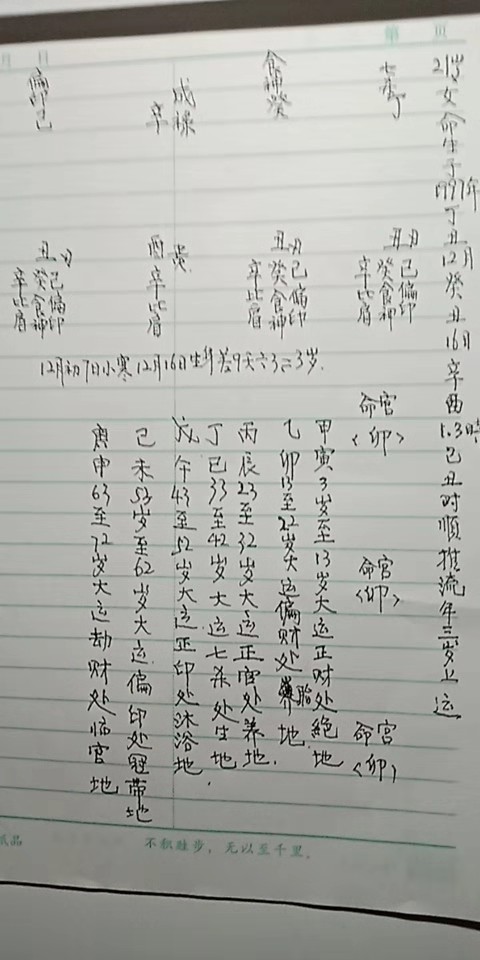 第 页
月 日
21岁女命生于1997年丁丑12月癸丑16日辛酉1.3時己丑时順推流年三岁上运
七杀丁
食神癸
戍禄
辛
偏印己
丑月
己偏印
癸食神
辛比肩
丑月
己偏印
癸食神
辛比肩
酉
辛比肩
丑月
己偏印
癸食神
辛比肩
12月初7日小寒12月16日生年差9天六3=3岁.
命宫<卯>
命宫<卯>
命宫<卯>
甲寅3岁至13岁大运正财处絕地
乙卯13至22岁大运偏财处胎地.
丙辰23至32岁大运正官处养地.
丁巳33至42岁大运七杀处生地.
戊午43至52岁大运正印处沐浴地
己未53岁至62岁大运偏印处冠带地
庚申63至72岁大运劫财处临官地
纸品
不积跬步，无以至千里。